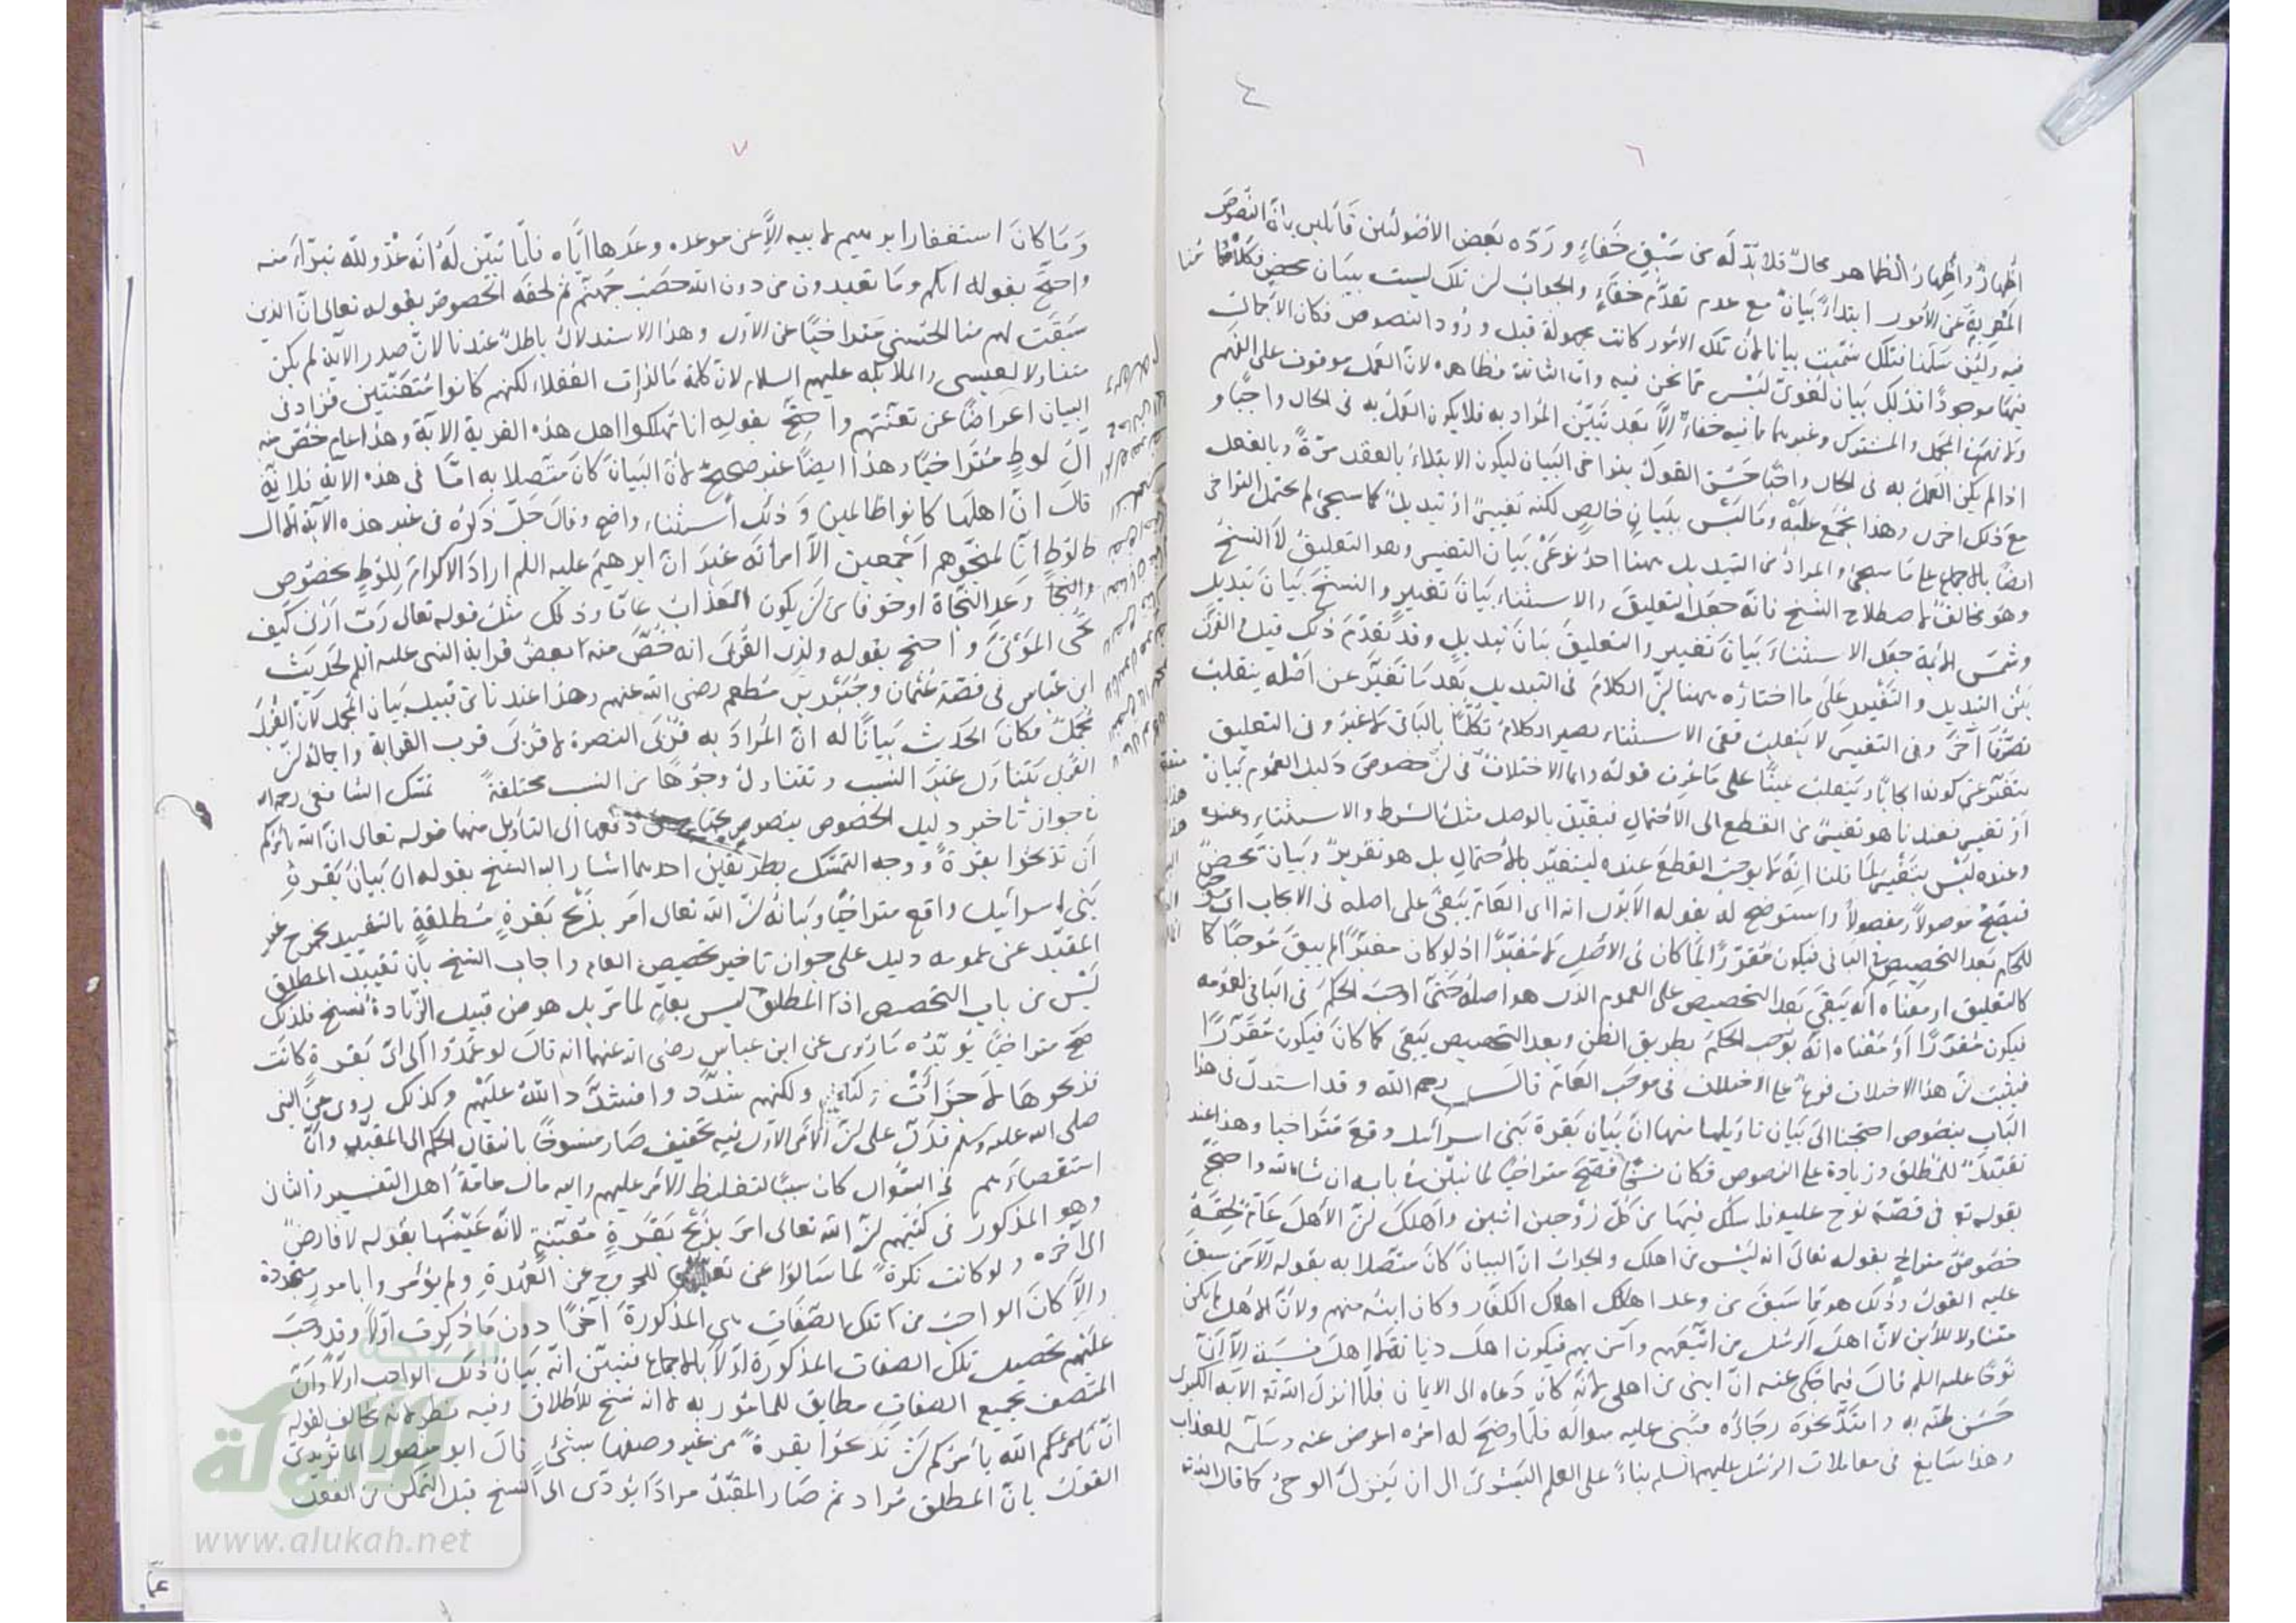 ٤
٦
اظهارٌ واظهارُ الظاهر محالٌ فلا بدّ له من سَبْق خَفاءٍ وردّه بعض الأصوليين قائلين بانّ النّصوص
المعربة عن الأمور ابتداءً بيانٌ مع عدم تقدّم خفاءٍ والجواب لن تلك ليست ببيان محض
فيه ولئن سلّمنا فتلك سُمّيت بيانا لأن تلك الأمور كانت مجهولة قبل ورود النصوص فكان الاجمال
فيها موجودًا فذلك بيان لغويّ ليس مما نحن فيه وامّا الثانية فظاهرة لانّ العمل موقوف على الفهم
المجمل والمشترك وغيرهما مما فيه خفاءٌ الّا بعد تبيّن المراد به فلا يكون العمل به في الحال واجبًا و
اذا لم يكن العمل به في الحال واجبًا حَسُن القول بتراخي البيان ليكون الابتلاء بالعقد مرّةً وبالفعل
مع ذلك اخرى وهذا مجمع عليه وما ليس ببيانٍ خالصٍ لكنه تغييرٌ او تبديلٌ كما سيجئ لم يحتمل التراخي
ايضًا بالاجماع على ما سيجئ والمراد من التبديل ههنا احد نوعَيْ بيان التغيير وهو التعليق لا النسخ
وهو مخالفٌ لاصطلاح الشيخ فانّه جعل التعليق والاستثناء بيانَ تغييرٍ والنسخَ بيانَ تبديلٍ
وشمس الأئمة جعل الاستثناءَ بيانَ تغيير والتعليقَ بيانَ تبديلٍ وقد تقدّم ذلك قيل الفرق
بين التبديل والتغيير على ما اختاره ههنا لنّ الكلام في التبديل بعد ما تغيّر عن اصله ينقلب
تصرّفا آخر وفي التغيير لا ينقلب ففي الاستثناء يصير الكلام تكلّمًا بالباقي لا غير وفي التعليق
يتغيّر عن كونه ايجابًا وينقلب يمينًا على ما عُرف قوله وانما الاختلاف في لنّ خصوصَ دليل العموم بيانٌ
او تغيير فعندنا هو تغييرٌ من القطع الى الاحتمال فيتقيّد بالوصل مثل الشرط والاستثناء وعنده
وعنده ليس بتغيير لما قلنا انّه لا يوجب القطع عنده ليتغيّر بالاحتمال بل هو تقريرٌ وبيانٌ محضٌ
فيصحّ موصولًا ومفصولًا واستوضح له بقوله الا يرى انه اي العامّ يبقى على اصله في الايجاب اي موجبٌ
للحكم بعد التخصيص في الباقي فيكون مقرّرًا لما كان في الأصل لا مغيّرًا اذ لو كان مغيّرًا لم يبق موجبًا
كالتعليق او معناه انّه يبقى بعد التخصيص على العموم الذى هو اصله حتى اوجب الحكم في الباقي لعمومه
فيكون مقرّرًا او معناه انّه يوجب الحكم بطريق الظن وبعد التخصيص يبقى كما كان فيكون مقرّرًا
فيثبت لنّ هذا الاختلاف فرعٌ على الاختلاف في موجب العامّ قال رحمه الله وقد استدلّ في هذا
الباب بنصوص احتجنا الى بيان تاويلها منها انّ بيان بقرة بنى اسرائيل وقع متراخيا وهذا عندنا
تقييدٌ للمطلق وزيادة على النصوص فكان نسخًا فصحّ متراخيًا لما نبيّن في بابه ان شاء الله واحتجّ
بقوله تع في قصّة نوح عليه السلام فاسلك فيها من كلّ زوجين اثنين واهلك لنّ الأهل عامّ لحقه
خصوصٌ متراخٍ بقوله تعالى انه ليس من اهلك والجواب انّ البيان كان متّصلا به بقوله الّا من سبق
عليه القول وذلك هو ما سبق من وعد اهلاك الكفّار وكان ابنه منهم ولانّ الأهل لم يكن
متناولا للابن لانّ اهل الرسل من اتّبعهم وآمن بهم فيكون اهل ديانة لا اهل نسبة الّا انّ
نوحًا عليه السلم قال فيما حُكي عنه انّ ابنى من اهلى لأنّه كان دعاه الى الايمان فلمّا انزل الله تع الآية الكبرى
حَسُن ظنّه به وامتدّ نحوه رجاؤه فبنى عليه سؤاله فلمّا وضح له امره اعرض عنه وسلّمه للعذاب
وهذا سايغ في معاملات الرسل عليهم السلم بناءً على العلم البشرى الى ان ينزل الوحى كما قال الله تع
٧
وَمَا كانَ استغفار ابرهيم لابيه الّا عن موعدة وعدها ايّاه فلمّا تبيّن لهُ انّه عدوّ للّه تبرّأ منه
واحتجّ بقوله انكم وما تعبدون من دون الله حصبُ جهنّم ثم لحقه الخصوص بقوله تعالى انّ الذين
سبقت لهم منا الحسنى متراخيًا عن الأول وهذا الاستدلال باطلٌ عندنا لانّ صدر الآية لم يكن
متناولا لعيسى والملائكة عليهم السلام لانّ كلمة ما لذوات غير العقلاء لكنهم كانوا متعنّتين فزاد في
البيان اعراضًا عن تعنّتهم واحتجّ بقوله انا مهلكوا اهل هذه القرية الآية وهذا عام خُصّ منه
آل لوطٍ متراخيًا وهذا ايضًا غير صحيحٍ لأن البيان كان متّصلا به امّا في هذه الآية فلانّه
قال انّ اهلها كانوا ظالمين وذلك استثناء واضح وقال جلّ ذكره في غير هذه الآية الّا آل
لوطٍ انّا لمنجّوهم اجمعين الّا امرأته غير انّ ابرهيم عليه السلم اراد الاكرام للوطٍ بخصوص
وعد النجاة او خوفا من لن يكون العذاب عامّا وذلك مثل قوله تعالى ربّ ارنى كيف
تحي الموتى واحتج بقوله ولذى القربى انه خُصّ منه بعضُ قرابة النبى عليه السلم لحديث
ابن عباس في قصّة عثمان وجبير بن مطعم رضى الله عنهم وهذا عندنا من قبيل بيان المجمل لانّ القربى
مجملٌ فكان الحديث بيانًا له انّ المراد به قربى النصرة لا قربى القرابة واجماله لنّ
القربى يتناول غير النسب ويتناول وجوهًا من النسب مختلفةً تمسّك الشافعى رحمه الله
في جواز تأخير دليل الخصوص بنصوص يحتاج الى التأويل منها قوله تعالى انّ الله يأمركم
ان تذبحوا بقرة ووجه التمسّك بطريقين احدهما اشار اليه الشيخ بقوله ان بيان بقرة
بنى اسرائيل واقع متراخيًا وبيانه لنّ الله تعالى امر بذبح بقرةٍ مطلقةٍ بالتقييد يخرج غير
المقيّد عن عمومه دليل على جواز تاخير تخصيص العام واجاب الشيخ بان تقييد المطلق
ليس من باب التخصيص اذ المطلق ليس بعامّ لما مرّ بل هو من قبيل الزيادة نسخ فلذلك
صحّ متراخيًا يؤيّده ما روى عن ابن عباس رضى الله عنهما انه قال لو عمدوا الى اىّ بقرة كانت
فذبحوها لاجزأت ولكنهم شدّدوا فشدّد الله عليهم وكذلك روى عن النبى
صلى الله عليه وسلم فدلّ على لنّ الأمر الأول فيه تخفيف صار منسوخًا بانتقال الحكم الى المقيّد وانّ
استقصاءهم في السّؤال كان سببًا لتغليظ الأمر عليهم واليه مال عامّةُ اهل التفسير والثانى
وهو المذكور في كتبهم لنّ الله تعالى امر بذبح بقرةٍ معيّنةٍ لانّه عيّنها بقوله لا فارضٌ
الى آخره ولو كانت نكرةً لما سألوا عن تعيينها للخروج عن العهدة ولم يؤمروا بامورٍ متجددة
والّا كان الواجب من تلك الصّفات هى المذكورة آخرًا دون ما ذكرت اوّلًا وقد وجب
عليهم تحصيل تلك الصفات المذكورة اوّلًا بالاجماع فتبيّن انّه بيان ذلك الواجب اوّلًا وانّ
المتّصف بجميع الصفات مطابق للمأمور به لا انه نسخ للاطلاق وفيه نظر لانه مخالف لقوله
انّ الله يأمركم لن تذبحوا بقرةً من غير وصفها بشئٍ قال ابو منصور الماتريدى
القول بانّ المطلق مراد ثم صار المقيّد مرادًا يؤدّى الى النسخ قبل التمكّن من العقد
الألوكة
www.alukah.net